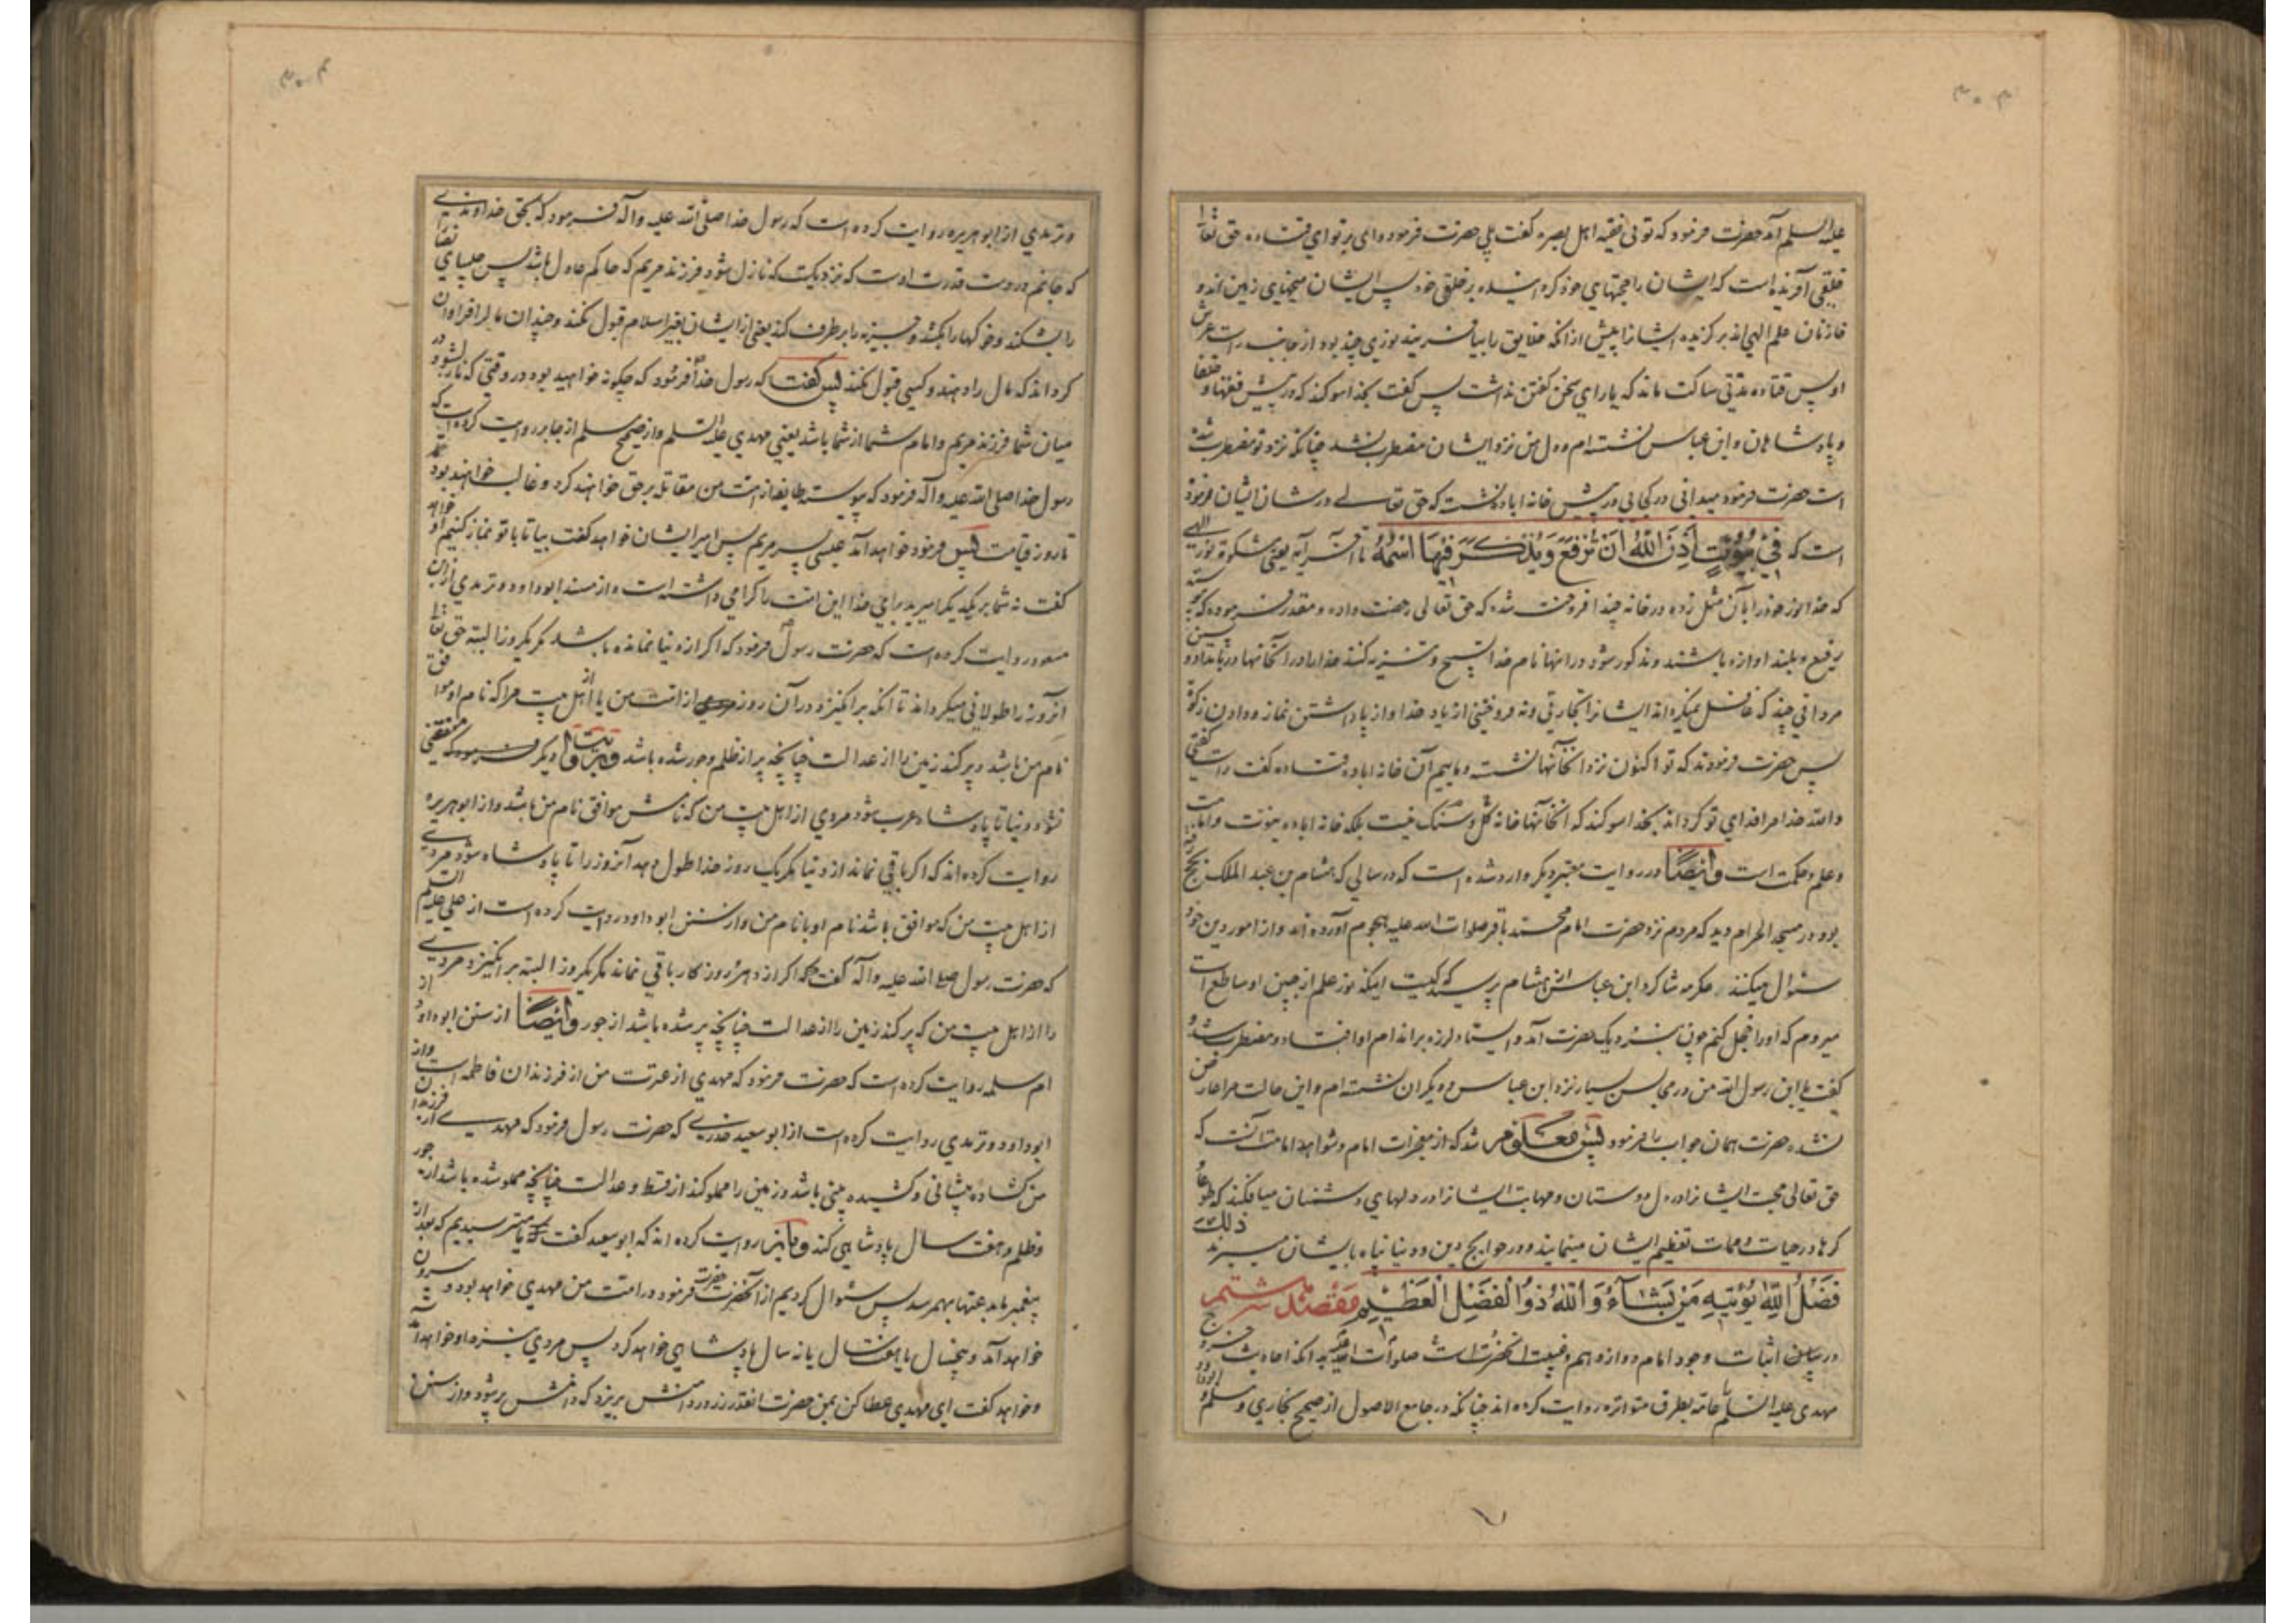 ۳۰۳
علیه السلام آمد حضرت فرمود که توئی فقیه اهل بصره گفت بلی حضرت فرمود وای بر تو ای قتاده حق تعالی
خلقی آفریده است که ایشان را حجتهای خود گردانیده بر خلق خود پس ایشان میخهای زمین اند و
خازنان علم الهی اند برگزیده ایشانرا پیش از آنکه خلایق را بیافریند نوری چند بود از جانب راست عرش
او پس قتاده مدتی ساکت ماند که یارای سخن گفتن نداشت پس گفت بخدا سوکند که در پیش فقها و خلفا
و پادشاهان و ابن عباس نشسته ام و دل من نزد ایشان مضطرب نشد چنانکه نزد تو مضطرب شده
است حضرت فرمود میدانی در کجائی در پیش خانه اباده نشسته که حق تعالی در شان ایشان فرموده
است که فِي بُيُوتٍ أَذِنَ اللهُ أَنْ تُرْفَعَ وَيُذْكَرَ فِيهَا اسْمُهُ تا آخر آیه یعنی مشکوة نور الهی
که خدا نور خود را بآن مثل زده در خانه چند افروخته شده که حق تعالی رخصت داده و مقدر فرموده که پیوسته
رفیع و بلند اوازه باشند و مذکور شود در انها نام خدا تسبیح و تنزیه کنند خدا را در آنخانها در بامداد و پسین
مردانی چند که غافل نمیکرداند ایشانرا تجارتی و نه فروختنی از یاد خدا و از بپا داشتن نماز و دادن زکوة
پس حضرت فرمودند که تو اکنون نزد انخانها نشسته و مائیم آن خانه اباده قتاده گفت راست گفتی
والله خدا مرا فدای تو گرداند بخدا سوکند که انخانها خانه گل و سنگ نیست بلکه خانه اباده نبوت و امامت
و علم و حکمت است وَاَيْضًا در روایت معتبر دیگر وارد شده است که در سالی که هشام بن عبد الملک بحج رفته
بود در مسجد الحرام دید که مردم نزد حضرت امام محمد باقر صلوات الله علیه هجوم آورده اند و از امور دین خود
سئوال میکنند عکرمه شاگرد ابن عباس از هشام پرسید که کیست اینکه نور علم از جبین او ساطع است
میروم که او را خجل کنم چون بنزدیک حضرت آمد و ایستاد لرزه بر اندام او افتاد و مضطرب شد و
گفت یا ابن رسول الله من در مجالس بسیار نزد ابن عباس و دیگران نشسته ام و این حالت مرا عارض
نشده حضرت همان جواب را فرمود پس معلوم شد که از معجزات امام و شواهد امامت آنست که
حق تعالی محبت ایشانرا در دل دوستان و مهابت ایشانرا در دلهای دشمنان میافکند که طوعا و
کرها در حیات و ممات تعظیم ایشان مینمایند و در حوایج دین و دنیا پناه بایشان میبرند ذلك
فَضْلُ اللهِ يُؤْتِيهِ مَنْ يَشَاءُ وَاللهُ ذُو الْفَضْلِ الْعَظِيمِ مقصد ششم
در بیان اثبات وجود امام دوازدهم و غیبت انحضرت است صلوات الله علیه بدانکه احادیث خروج
مهدی علیه السلام را عامه بطرق متواتره روایت کرده اند چنانکه در جامع الاصول از صحیح بخاری و مسلم و ابو داود
۳۰۴
و ترمدی از ابو هریره روایت کرده است که رسول خدا صلی الله علیه و آله فرمود که بحق خداوندی
که جانم در دست قدرت اوست که نزدیکست که نازل شود فرزند مریم که حاکم عادل باشد پس چلیپای نصارا
را بشکند و خوکها را بکشد و جزیه را برطرف کند یعنی از ایشان بغیر اسلام قبول نکند و چندان مال را فراوان
کرداند که مال را دهند و کسی قبول نکند پس گفت که رسول خدا فرمود که چگونه خواهید بود در وقتی که نازل شود در
میان شما فرزند مریم و امام شما از شما باشد یعنی مهدی علیه السلام و از صحیح مسلم از جابر روایت کرده است که
رسول خدا صلی الله علیه و آله فرمود که پیوسته طایفه از امت من مقاتله بر حق خواهند کرد و غالب خواهند بود
تا روز قیامت پس فرمود خواهد آمد عیسی پسر مریم پس امیر ایشان خواهد گفت بیا تا با تو نماز کنیم او خواهد
گفت نه شما بر یکدیگر امیرید برای خدا این امت را گرامی داشته است و از مسند ابو داود و ترمدی از ابن
مسعود روایت کرده است که حضرت رسول فرمود که اگر از دنیا نمانده باشد مگر یکروز البته حق تعالی
انروز را طولانی میگرداند تا آنکه برانگیزد در آن روز از امت من یا از اهل بیت مرا که نام او موافق
نام من باشد و پر کند زمین را از عدالت چنانچه پر از ظلم و جور شده باشد دیگر فرمود که منقضی
نشود دنیا تا پادشاه عرب شود مردی از اهل بیت من که نامش موافق نام من باشد و از ابو هریره
روایت کرده اند که اگر باقی نماند از دنیا مگر یک روز خدا طول دهد آنروز را تا پادشاه شود مردی
از اهل بیت من که موافق باشد نام او با نام من و از سنن ابو داود روایت کرده است از علی علیه السلام
که حضرت رسول صلی الله علیه و آله گفت که اگر از دهر و روزگار باقی نماند مگر یکروز البته برانگیزد مردی
را از اهل بیت من که پر کند زمین را از عدالت چنانچه پر شده باشد از جور وَاَيْضًا از سنن ابو داود از
ام سلمه روایت کرده است که حضرت فرمود که مهدی از عترت من از فرزندان فاطمه است و از
ابو داود و ترمدی روایت کرده است از ابو سعید خدری که حضرت رسول فرمود که مهدی از فرزندان
من گشاده پیشانی و کشیده بینی باشد و زمین را مملو کند از قسط و عدالت چنانچه مملو شده باشد از جور
و ظلم و هفت سال پادشاهی کند و باز روایت کرده اند که ابو سعید گفت میترسیدیم که بعد از
پیغمبر بدعتها بهم رسد پس سئوال کردیم از آنحضرت فرمود در امت من مهدی خواهد بود و بیرون
خواهد آمد و پنجسال یا هفت سال یا نه سال پادشاهی خواهد کرد پس مردی بنزد او خواهد آمد
و خواهد گفت ای مهدی عطا کن بمن حضرت انقدر زر در دامنش بریزد که دامنش پر شود و از سنن